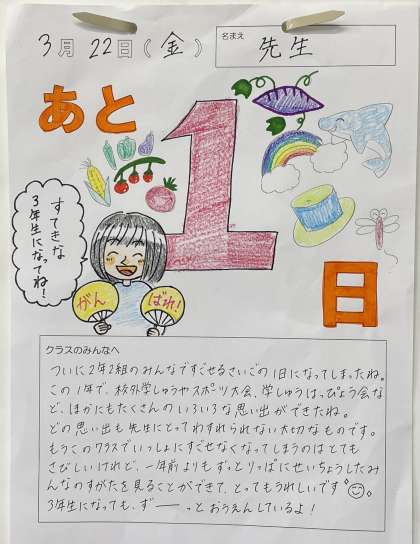 3月22日(金)
名まえ 先生
あと
1
日
すてきな
3年生になってね!
がん
ばれ!
クラスのみんなへ
ついに2年2組のみんなですごせるさいごの1日になってしまったね。
この1年で、校外学しゅうやスポーツ大会、学しゅうはっぴょう会な
ど、ほかにもたくさんのいろいろな思い出ができたね。
どの思い出も先生にとってわすれられない大切なものです。
もうこのクラスでいっしょにすごせなくなってしまうのはとても
さびしいけれど、一年前よりもずっとりっぱにせいちょうしたみ
んなのすがたを見ることができて、とってもうれしいです
3年生になっても、ずーーっとおうえんしているよ!